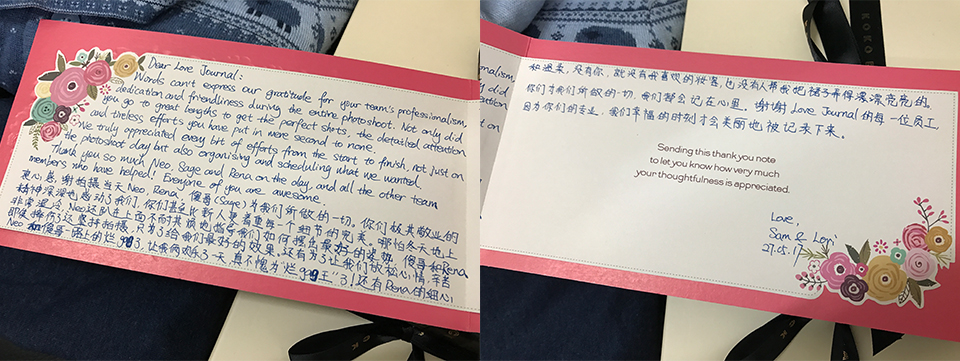 Dear Love Journal:
Words can't express our gratitude for your team's professionalism,
dedication and friendliness during the entire photoshoot. Not only did
you go to great lengths to get the perfect shots, the detailed attention
and tireless efforts you have put in were second to none.
We truly appreciated every bit of efforts from the start to finish, not just on
the photoshoot day but also organising and scheduling what we wanted.
Thank you so much, Neo, Sage and Rena on the day, and all the other team
members who have helped! Everyone of you are awesome.
衷心感谢拍摄当天Neo, Rena, 傻哥(Sage)为我们所做的一切。你们极其敬业的
精神深深地感动了我们,你们甚至比新人更着重每一个细节的完美。哪怕冬天地上
非常湿冷,Neo还趴在上面不耐其烦地指导我们如何摆出最好的姿势,傻哥和Rena
即使擦伤了还坚持拍摄,只为了给我们最好的效果。还有为了让我们放松心情,辛苦
Neo和傻哥一路上的烂gag了,让我俩欢乐了一天,真不愧为"烂gag王"了!还有Rena的细心
和温柔,没有你,就没有我喜欢的妆容,也没有人帮我把裙子弄得漂漂亮亮的。
你们为我们所做的一切,我们都会记在心里。谢谢Love Journal的每一位员工,
因为你们的专业,我们幸福的时刻才会美丽地被记录下来。
Sending this thank you note
to let you know how very much
your thoughtfulness is appreciated.
Love,
Sam & Lori
27.05.17
KOKO